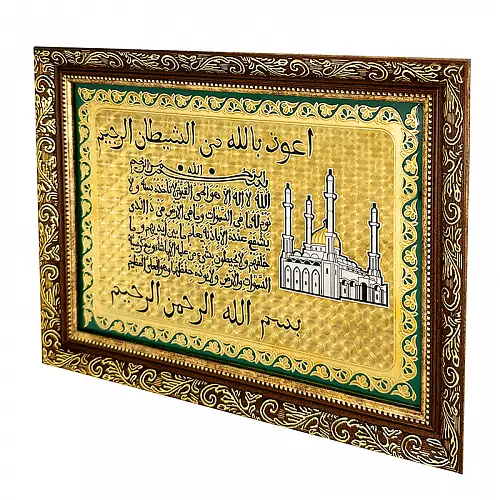 اعوذ بالله من الشيطان الرجيم
الله لا اله الا هو الحي القيوم لا تاخذه سنة ولا
نوم له ما في السموات وما في الارض من ذ الذي
يشفع عنده الا باذنه يعلم ما بين ايديهم وما
خلفهم ولا يحيطون بشيء من علمه الا بما شاء وسع كرسيه
السموات والارض ولا يؤده حفظهما وهو العلي العظيم
بسم الله الرحمن الرحيم